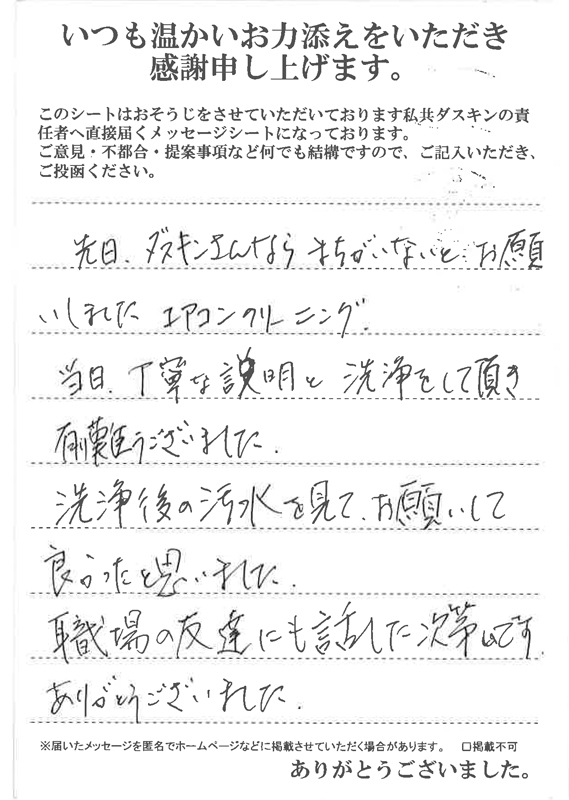 いつも温かいお力添えをいただき
感謝申し上げます。
このシートはおそうじをさせていただいております私共ダスキンの責
任者へ直接届くメッセージシートになっております。
ご意見・不都合・提案事項など何でも結構ですので、ご記入いただき、
ご投函ください。
先日、ダスキンさんなら まちがいないと お願
いしました エアコンクリーニング.
当日、丁寧な説明と 洗浄をして頂き
有難うございました.
洗浄後の汚水を見て、お願いして
良かったと思いました.
職場の友達にも話した次第です.
ありがとうございました.
※届いたメッセージを匿名でホームページなどに掲載させていただく場合があります。 □掲載不可
ありがとうございました。